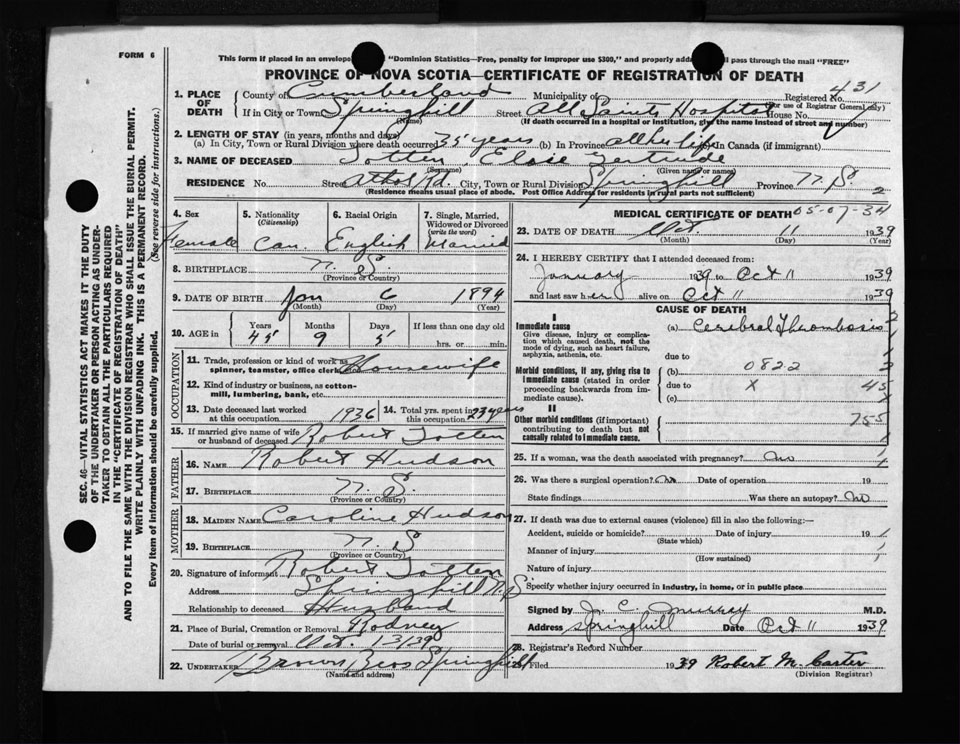 FORM 6
This form if placed in an envelope "Dominion Statistics—Free, penalty for improper use $300," and properly addre ll pass through the mail "FREE"
PROVINCE OF NOVA SCOTIA—CERTIFICATE OF REGISTRATION OF DEATH
431
1. PLACE OF DEATH
County of Cumberland Municipality of Registered No.
(For use of Registrar General only)
If in City or Town Springhill Street All Saints Hospital House No.
(Name) (If death occurred in a hospital or institution, give the name instead of street and number)
2. LENGTH OF STAY (in years, months and days)
(a) In City, Town or Rural Division where death occurred 35 years (b) In Province all her life (c) In Canada (if immigrant)
3. NAME OF DECEASED Totten Elsie Gertrude
(Surname) (Given name or names)
RESIDENCE No. Street Athol Rd. City, Town or Rural Division Springhill Province N.S.
2
(Residence means usual place of abode. Post Office Address for residents in rural parts not sufficient)
4. Sex
Female
5. Nationality
(Citizenship)
Can.
6. Racial Origin
English
7. Single, Married, Widowed or Divorced
(write the word)
Married
8. BIRTHPLACE N. S.
(Province or Country)
9. DATE OF BIRTH Jan 6 1894
(Month) (Day) (Year)
10. AGE in
Years Months Days If less than one day old
45 9 5 hrs. or min.
OCCUPATION
11. Trade, profession or kind of work as spinner, teamster, office clerk, etc. Housewife
12. Kind of industry or business, as cotton-mill, lumbering, bank, etc.
13. Date deceased last worked at this occupation 1936
14. Total yrs. spent in this occupation 23 years
15. If married give name of wife or husband of deceased Robert Totten
FATHER
16. NAME Robert Hudson
17. BIRTHPLACE N. S.
(Province or Country)
MOTHER
18. MAIDEN NAME Caroline Hudson
19. BIRTHPLACE N. S
(Province or Country)
20. Signature of informant Robert Totten
Address Springhill N.S
Relationship to deceased Husband
21. Place of Burial, Cremation or Removal Rodney
Date of burial or removal Oct. 13/39
22. UNDERTAKER Brown Bros Springhill
(Name and address)
MEDICAL CERTIFICATE OF DEATH 05-07-34
23. DATE OF DEATH Oct. 11 1939
(Month) (Day) (Year)
24. I HEREBY CERTIFY that I attended deceased from:
January 1939 to Oct 11 1939
and last saw her alive on Oct 11 1939
CAUSE OF DEATH
I
Immediate cause
Give disease, injury or complication which caused death, not the mode of dying, such as heart failure, asphyxia, asthenia, etc.
(a) Cerebral Thrombosis
due to
Morbid conditions, if any, giving rise to immediate cause (stated in order proceeding backwards from immediate cause).
(b) 0822
due to X 45
(c)
II
Other morbid conditions (if important) contributing to death but not causally related to immediate cause.
755
25. If a woman, was the death associated with pregnancy? no
26. Was there a surgical operation? no Date of operation 19
State findings Was there an autopsy? no
27. If death was due to external causes (violence) fill in also the following:—
Accident, suicide or homicide? Date of injury 19
(State which)
Manner of injury
(How sustained)
Nature of injury
Specify whether injury occurred in industry, in home, or in public place
Signed by J. C. Murray M.D.
Address Springhill Date Oct 11 1939
28. Registrar's Record Number
29. Filed 1939 Robert M. Carter
(Division Registrar)
SEC. 46—VITAL STATISTICS ACT MAKES IT THE DUTY
OF THE UNDERTAKER OR PERSON ACTING AS UNDER-
TAKER TO OBTAIN ALL THE PARTICULARS REQUIRED
IN THE "CERTIFICATE OF REGISTRATION OF DEATH"
AND TO FILE THE SAME WITH THE DIVISION REGISTRAR WHO SHALL ISSUE THE BURIAL PERMIT.
WRITE PLAINLY WITH UNFADING INK. THIS IS A PERMANENT RECORD.
Every item of information should be carefully supplied. (See reverse side for instructions.)